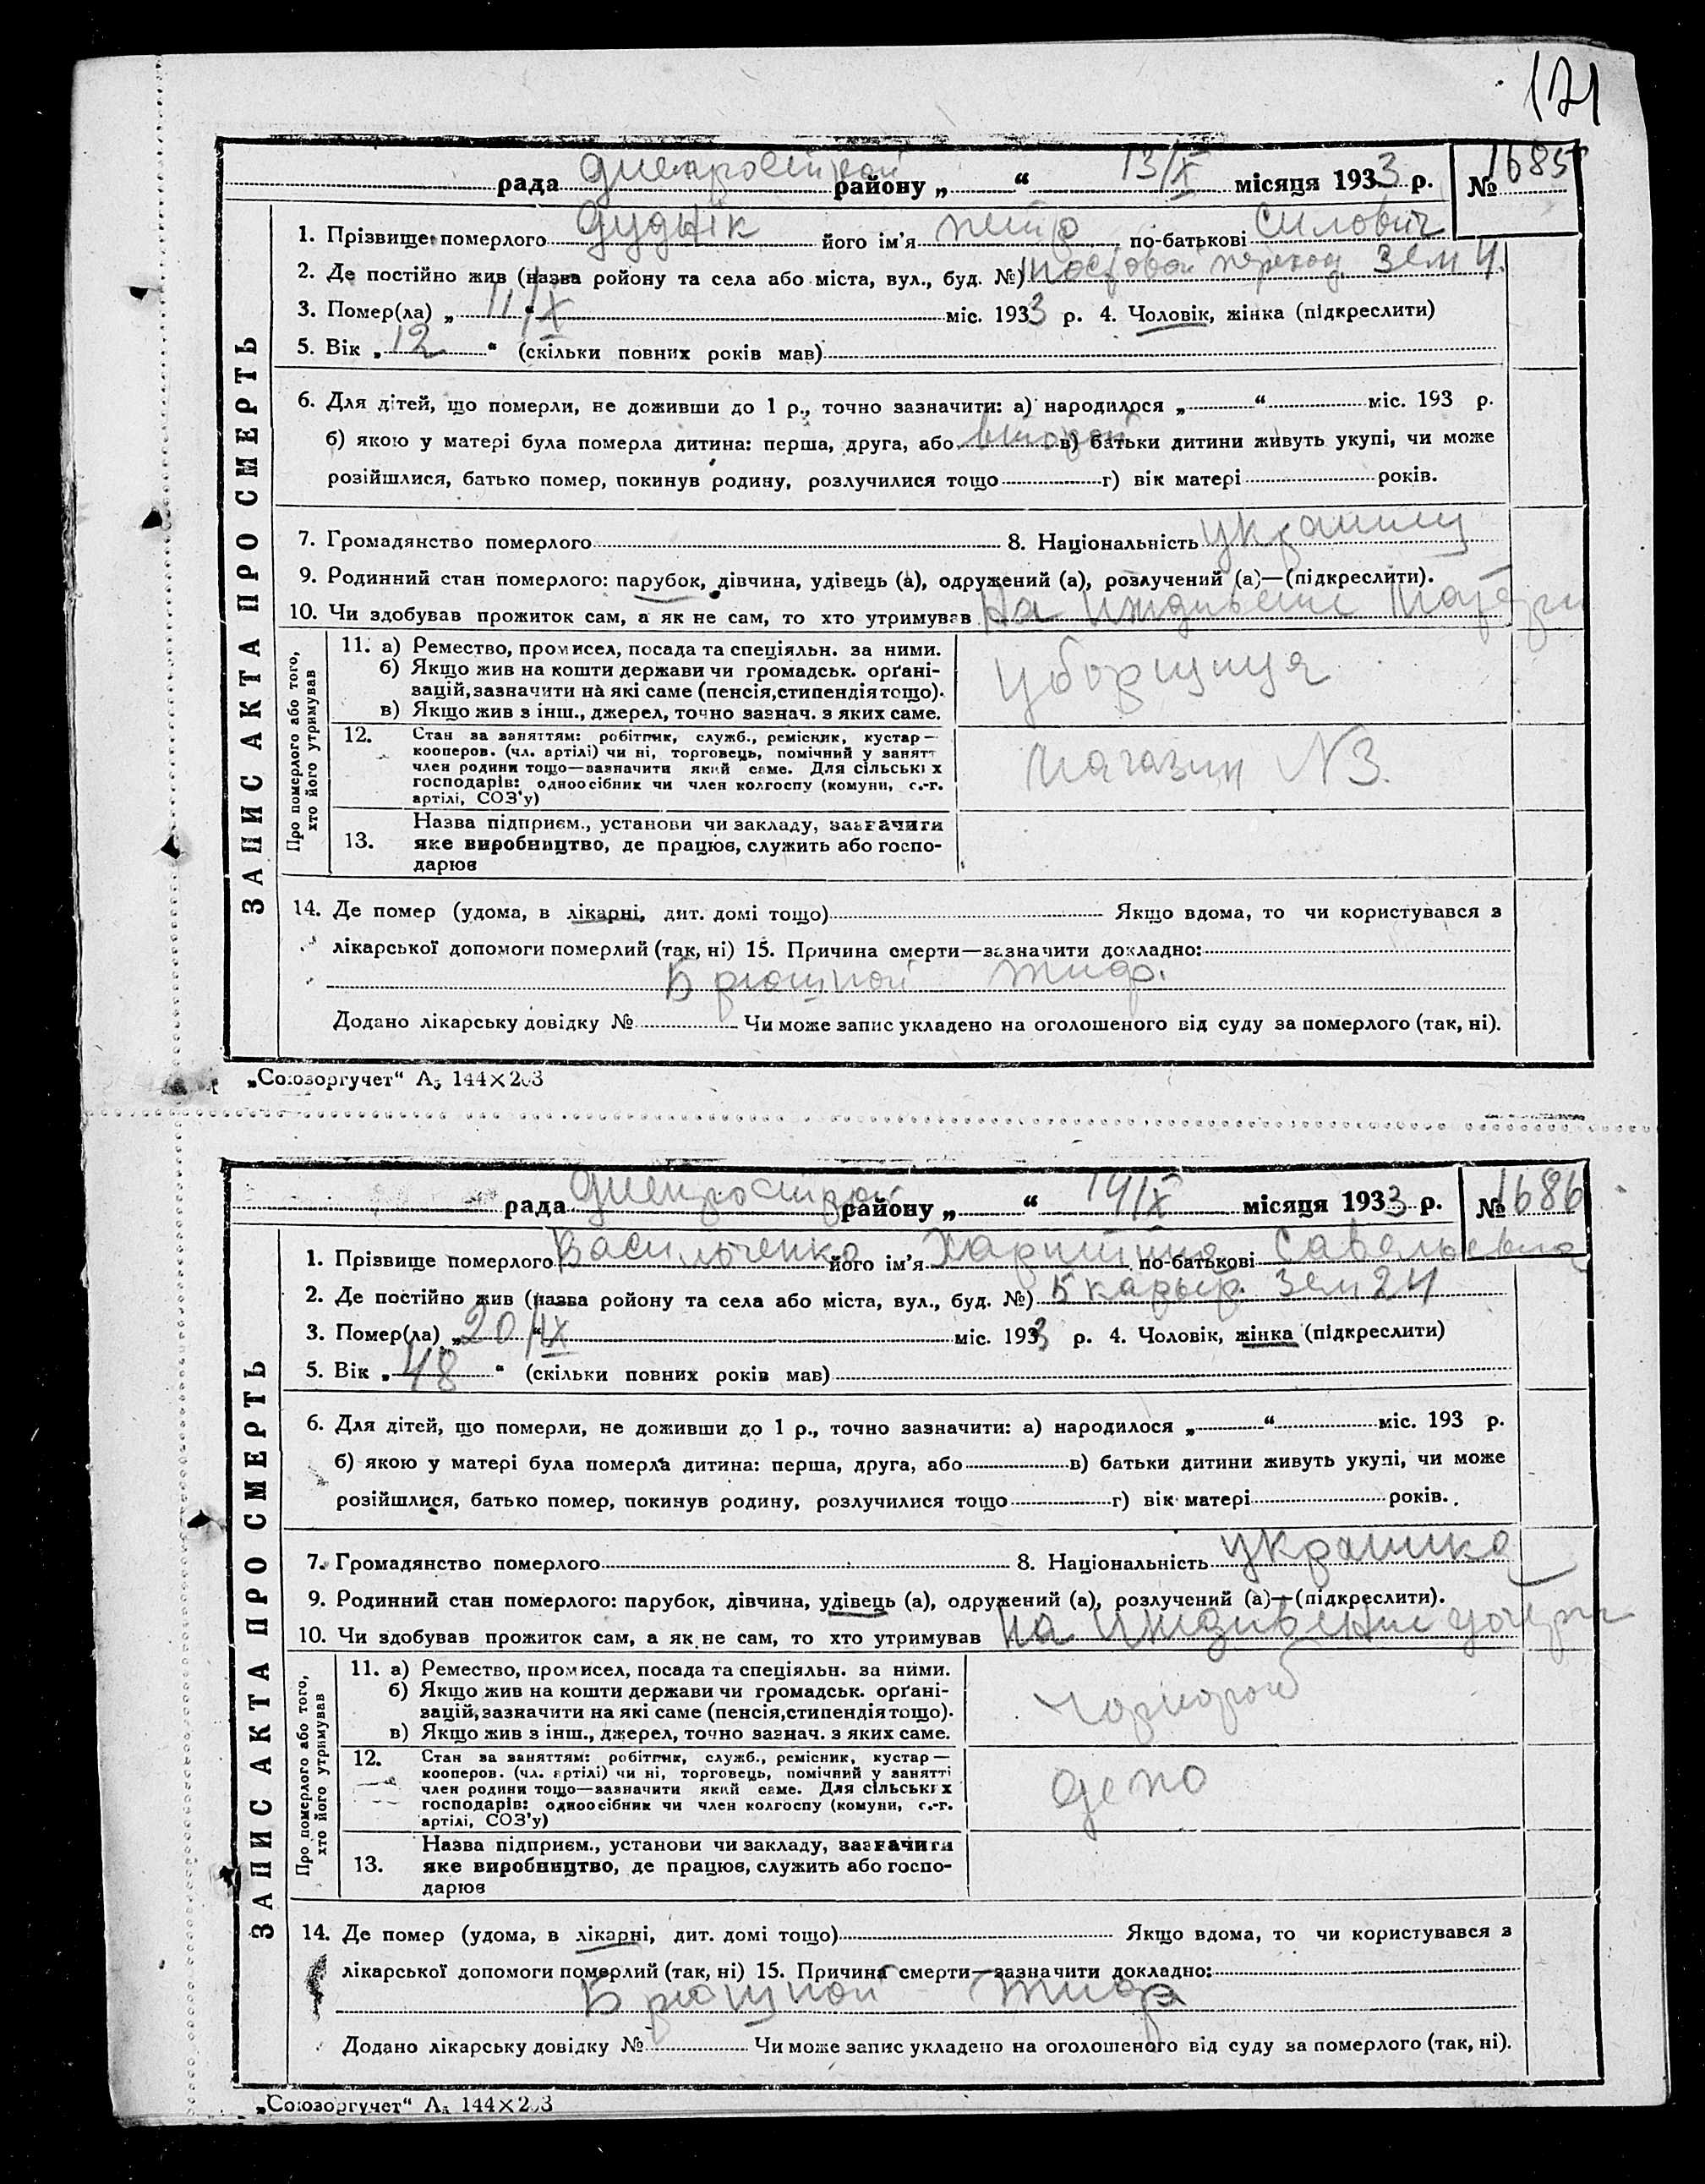 171
рада Днепрострой району „ “ 13/X місяця 1933 р. № 1685
1. Прізвище померлого Дудник його ім’я Петр по-батькові Силович
2. Де постійно жив (назва району та села або міста, вул., буд. №) Мостовой переход Зем 4.
3. Помер(ла) „ 11 “ /X міс. 1933 р. 4. Чоловік, жінка (підкреслити)
5. Вік „ 12 “ (скільки повних років мав)
6. Для дітей, що померли, не доживши до 1 р., точно зазначити: а) народилося „ “ міс. 193 р.
б) якою у матері була померла дитина: перша, друга, або второй в) батьки дитини живуть укупі, чи може
розійшлися, батько помер, покинув родину, розлучилися тощо г) вік матері років.
7. Громадянство померлого 8. Національність украинц
9. Родинний стан померлого: парубок, дівчина, удівець (а), одружений (а), розлучений (а)—(підкреслити).
10. Чи здобував прожиток сам, а як не сам, то хто утримував На иждивении матери
ЗАПИС АКТА ПРО СМЕРТЬ
Про померлого або того, хто його утримував
11. а) Ремество, промисел, посада та спеціяльн. за ними.
б) Якщо жив на кошти держави чи громадськ. орґані-
зацій, зазначити на які саме (пенсія, стипендія тощо).
в) Якщо жив з інш., джерел, точно зазнач. з яких саме.
уборщиця
12. Стан за заняттям: робітник, служб., ремісник, кустар—
кооперов. (чл. артілі) чи ні, торговець, помічний у занятт
член родини тощо—зазначити який саме. Для сільських
господарів: одноосібник чи член колгоспу (комуни, с.-г.
артілі, СОЗ’у)
магазин N3.
13. Назва підприєм., установи чи закладу, зазначити
яке виробництво, де працює, служить або госпо-
дарює
14. Де помер (удома, в лікарні, дит. домі тощо) Якщо вдома, то чи користувався з
лікарської допомоги померлий (так, ні) 15. Причина смерти—зазначити докладно:
Брюшной тиф.
Додано лікарську довідку № Чи може запис укладено на оголошеного від суду за померлого (так, ні).
„Союзоргучет“ А5 144×203
рада Днепрострой району „ “ 14/X місяця 1933 р. № 1686
1. Прізвище померлого Васильченко його ім’я Харитина по-батькові Савельевна
2. Де постійно жив (назва району та села або міста, вул., буд. №) Б карьер. Зем 24
3. Помер(ла) „ 20 “ /IX міс. 1933 р. 4. Чоловік, жінка (підкреслити)
5. Вік „ 48 “ (скільки повних років мав)
6. Для дітей, що померли, не доживши до 1 р., точно зазначити: а) народилося „ “ міс. 193 р.
б) якою у матері була померла дитина: перша, друга, або в) батьки дитини живуть укупі, чи може
розійшлися, батько помер, покинув родину, розлучилися тощо г) вік матері років.
7. Громадянство померлого 8. Національність украинка
9. Родинний стан померлого: парубок, дівчина, удівець (а), одружений (а), розлучений (а)—(підкреслити).
10. Чи здобував прожиток сам, а як не сам, то хто утримував На иждивении дочери
ЗАПИС АКТА ПРО СМЕРТЬ
Про померлого або того, хто його утримував
11. а) Ремество, промисел, посада та спеціяльн. за ними.
б) Якщо жив на кошти держави чи громадськ. орґані-
зацій, зазначити на які саме (пенсія, стипендія тощо).
в) Якщо жив з інш., джерел, точно зазнач. з яких саме.
Чорнороб
12. Стан за заняттям: робітник, служб., ремісник, кустар—
кооперов. (чл. артілі) чи ні, торговець, помічний у занятті
член родини тощо—зазначити який саме. Для сільських
господарів: одноосібник чи член колгоспу (комуни, с.-г.
артілі, СОЗ’у)
депо
13. Назва підприєм., установи чи закладу, зазначити
яке виробництво, де працює, служить або госпо-
дарює
14. Де помер (удома, в лікарні, дит. домі тощо) Якщо вдома, то чи користувався з
лікарської допомоги померлий (так, ні) 15. Причина смерти—зазначити докладно:
Брюшной тиф
Додано лікарську довідку № Чи може запис укладено на оголошеного від суду за померлого (так, ні).
„Союзоргучет“ А5 144×203